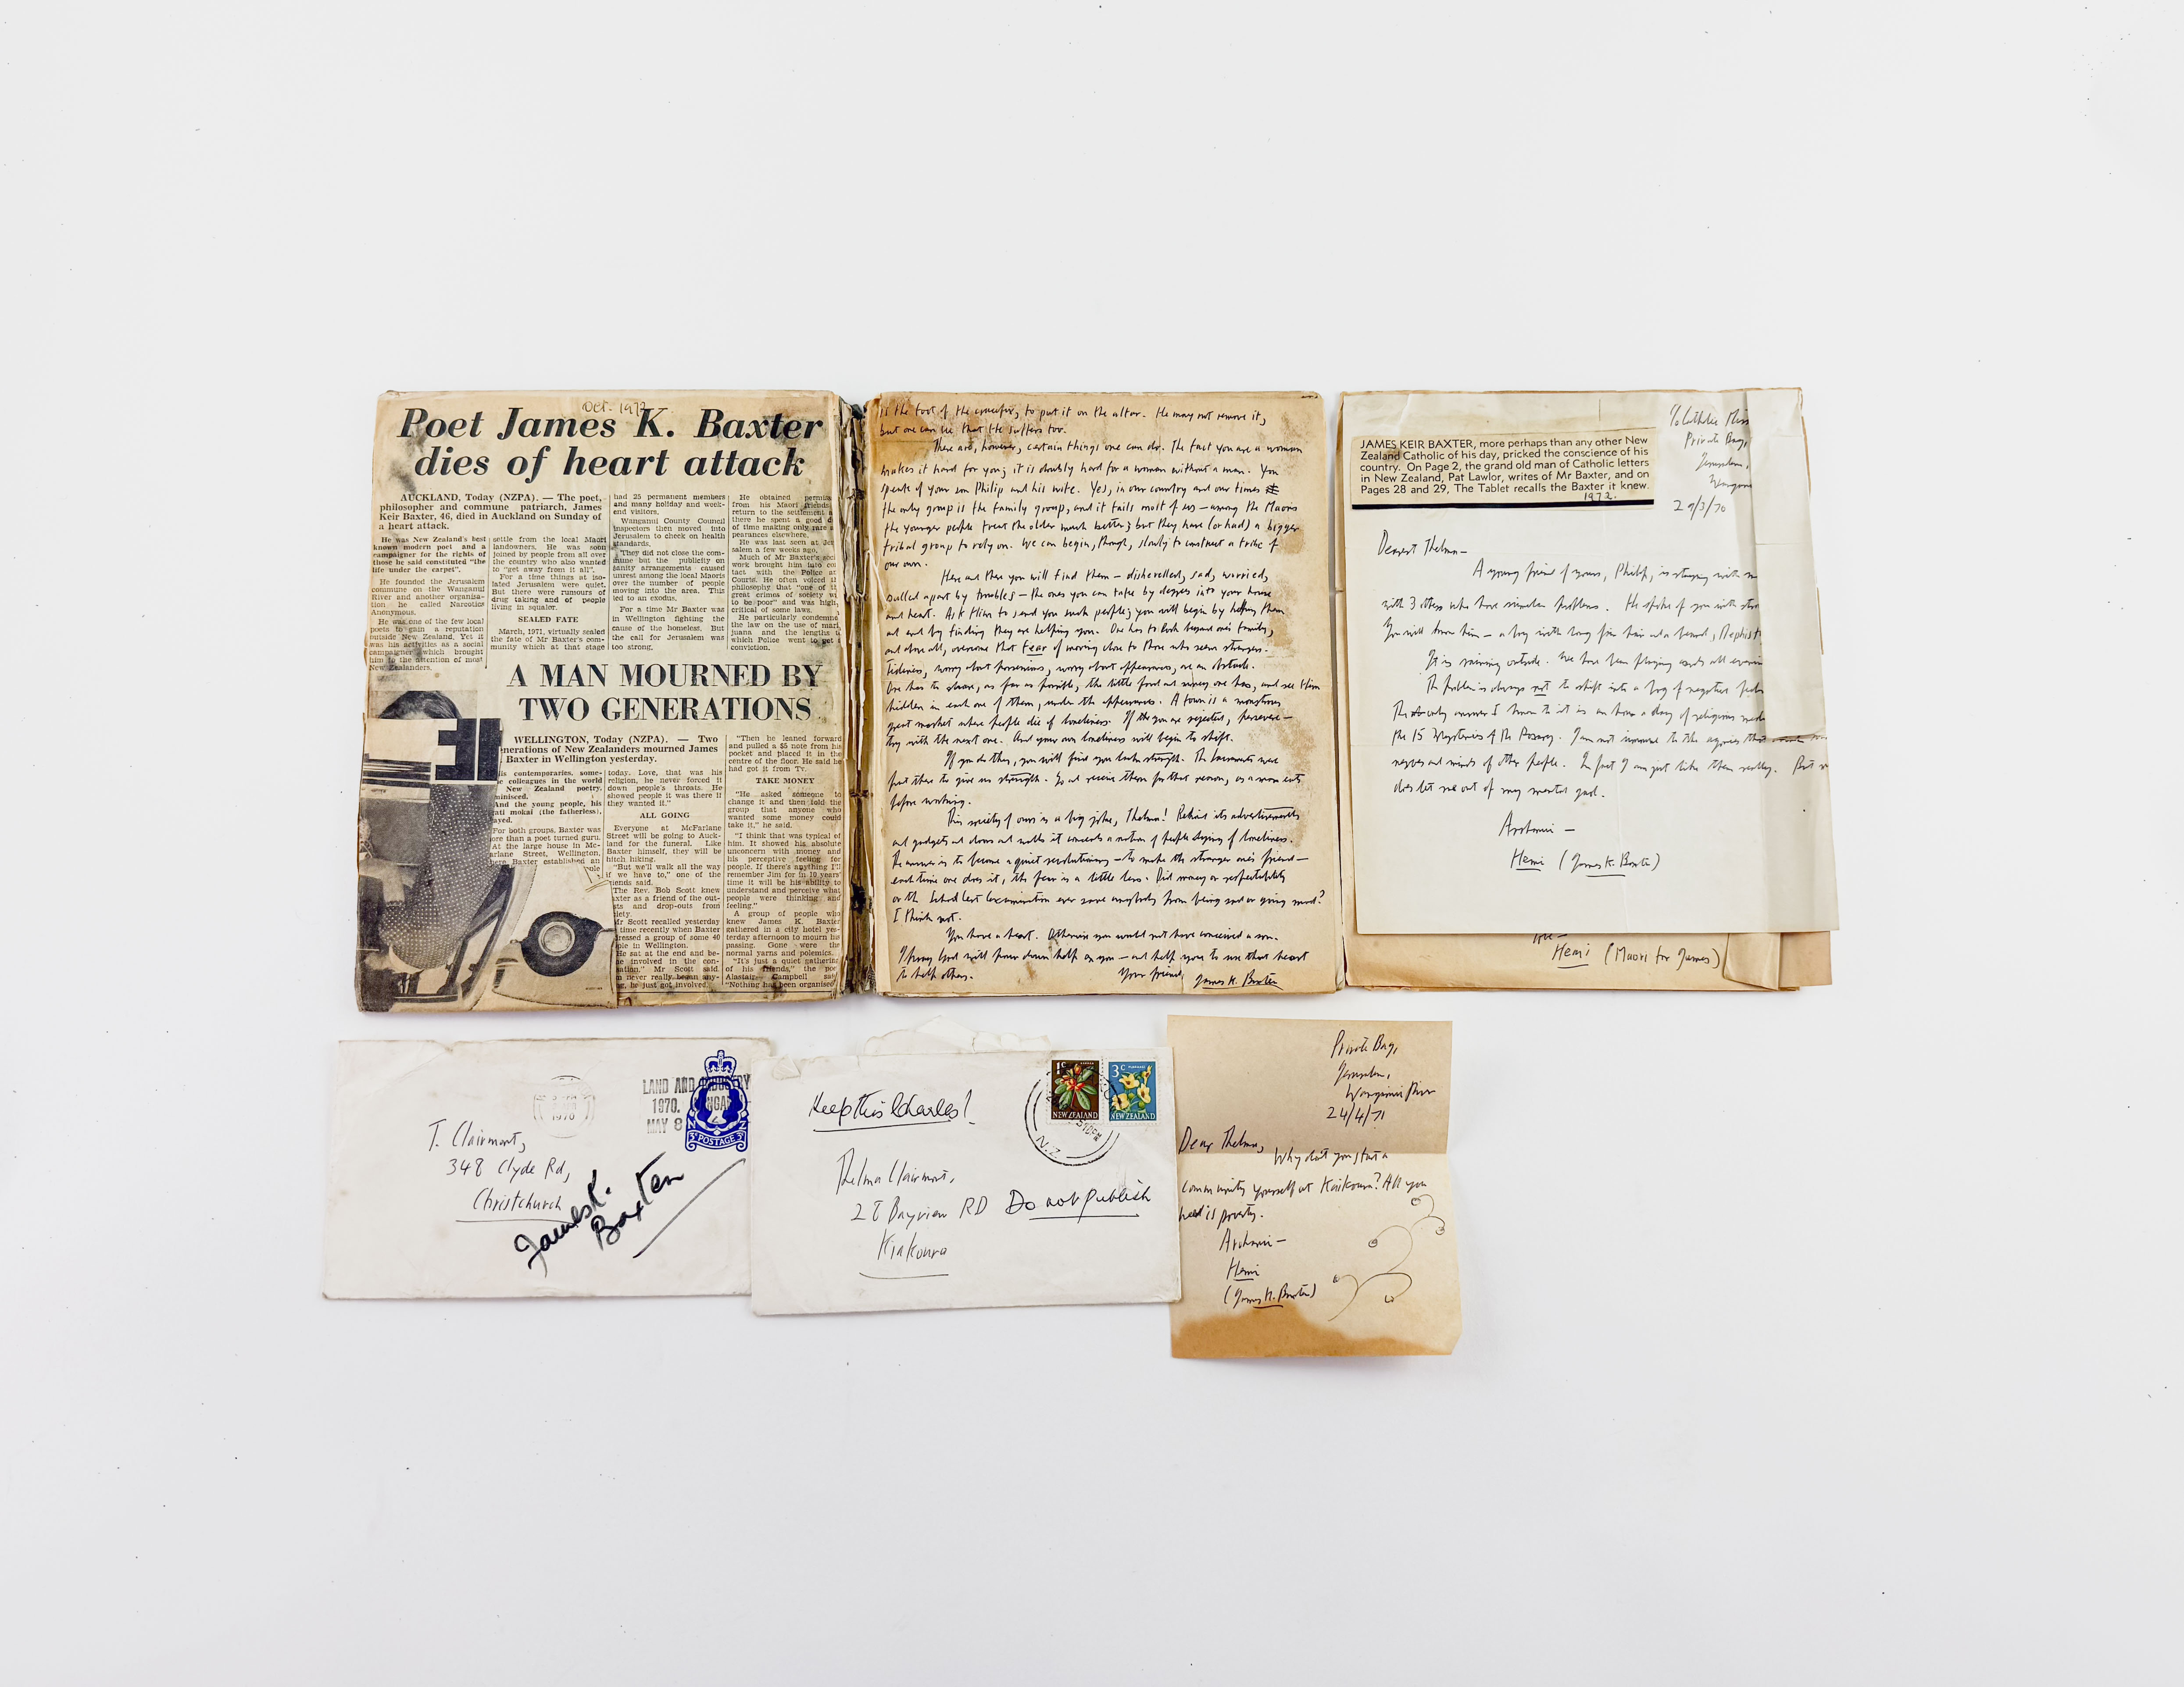 Oct. 1972
Poet James K. Baxter
dies of heart attack
AUCKLAND, Today (NZPA). — The poet,
philosopher and commune patriarch, James
Keir Baxter, 46, died in Auckland on Sunday of
a heart attack.
He was New Zealand's best
known modern poet and a
campaigner for the rights of
those he said constituted "the
life under the carpet".
He founded the Jerusalem
commune on the Wanganui
River and another organisa-
tion he called Narcotics
Anonymous.
He was one of the few local
poets to gain a reputation
outside New Zealand. Yet it
was his activities as a social
campaigner which brought
him to the attention of most
New Zealanders.
settle from the local Maori
landowners. He was soon
joined by people from all over
the country who also wanted
to "get away from it all".
For a time things at iso-
lated Jerusalem were quiet.
But there were rumours of
drug taking and of people
living in squalor.
SEALED FATE
March, 1971, virtually sealed
the fate of Mr Baxter's com-
munity which at that stage
had 25 permanent members
and many holiday and week-
end visitors.
Wanganui County Council
inspectors then moved into
Jerusalem to check on health
standards.
They did not close the com-
mune but the publicity on
sanity arrangements caused
unrest among the local Maoris
over the number of people
moving into the area. This
led to an exodus.
For a time Mr Baxter was
in Wellington fighting the
cause of the homeless. But
the call for Jerusalem was
too strong.
He obtained
from his Maori friends
return to the settlement
there he spent a good
of time making only rare
pearances elsewhere.
He was last seen at
salem a few weeks ago.
Much of Mr Baxter's
work brought him into
tact with the Police at
Courts. He often voiced
philosophy that "one of
great crimes of society
to be poor" and was high
critical of some laws.
He particularly condemne
the law on the use of mari
juana and the lengths
which Police went to get
conviction.
A MAN MOURNED BY
TWO GENERATIONS
WELLINGTON, Today (NZPA). — Two
nerations of New Zealanders mourned James
Baxter in Wellington yesterday.
is contemporaries, some-
e colleagues in the world
New Zealand poetry,
minisced.
And the young people, his
ati mokai (the fatherless),
ayed.
For both groups, Baxter was
ore than a poet turned guru.
At the large house in Mc-
arlane Street, Wellington,
here Baxter established an
ple
today. Love, that was his
religion, he never forced it
down people's throats. He
showed people it was there if
they wanted it."
ALL GOING
Everyone at McFarlane
Street will be going to Auck-
land for the funeral. Like
Baxter himself, they will be
hitch hiking.
"But we'll walk all the way
if we have to," one of the
iends said.
The Rev. Bob Scott knew
xter as a friend of the out-
sts and drop-outs from
iety.
Mr Scott recalled yesterday
time recently when Baxter
dressed a group of some 40
ple in Wellington.
"He sat at the end and be-
e involved in the con-
sation," Mr Scott said.
n never really began any-
g, he just got involved.
"Then he leaned forward
and pulled a $5 note from his
pocket and placed it in the
centre of the floor. He said he
had got it from Tv.
TAKE MONEY
"He asked someone to
change it and then told the
group that anyone who
wanted some money could
take it," he said.
"I think that was typical of
him. It showed his absolute
unconcern with money and
his perceptive feeling for
people. If there's anything I'll
remember Jim for in 10 years'
time it will be his ability to
understand and perceive what
people were thinking and
feeling."
A group of people who
knew James K. Baxter
gathered in a city hotel yes-
terday afternoon to mourn his
passing. Gone were the
normal yarns and polemics.
"It's just a quiet gathering
of his friends," the poe
Alastair Campbell sai
"Nothing has been organised
is the foot of the crucifix, to put it on the altar. He may not remove it,
but one can be that He suffers too.
There are, however, certain things one can do. The fact you are a woman
makes it hard for you; it is doubly hard for a woman without a man. You
speak of your son Philip and his wife. Yes, in our country and our times
the only group is the family group, and it fails most of us — among the Maoris
the younger people treat the older much better; but they have (or had) a bigger
tribal group to rely on. We can begin, though, slowly to construct a tribe of
our own.
Here and there you will find them — dishevelled, sad, worried,
pulled apart by troubles — the ones you can take by degrees into your house
and heart. Ask Him to send you such people; you will begin by helping them
and end by finding they are helping you. One has to look beyond one's family,
and above all, overcome that fear of moving close to those who seem strangers.
Tidiness, worry about possessions, worry about appearances, are an obstacle.
One has to share, as far as possible, the little food and money one has, and see Him
hidden in each one of them, under the appearances. A town is a monstrous
great market where people die of loneliness. If you are rejected, persevere —
try with the next one. And your own loneliness will begin to shift.
If you do this, you will find you lack strength. The Sacraments were
put there to give us strength. So receive them for that reason, as a man eats
before working.
This society of ours is a big joke, Thelma! Behind its advertisements
and gadgets and doors and walls it conceals a nation of people dying of loneliness.
The answer is to become a quiet revolutionary — to make the stranger one's friend —
each time one does it, the fear is a little less. Did money or respectability
or the School Cert Examination ever save anybody from being sad or going mad?
I think not.
You have a heart. Otherwise you would not have conceived a son.
I pray God will pour down help on you — and help you to use that heart
to help others.
Your friend, James K. Baxter
Private Bag,
Jerusalem,
29/3/70
JAMES KEIR BAXTER, more perhaps than any other New
Zealand Catholic of his day, pricked the conscience of his
country. On Page 2, the grand old man of Catholic letters
in New Zealand, Pat Lawlor, writes of Mr Baxter, and on
Pages 28 and 29, The Tablet recalls the Baxter it knew.
1972.
Dearest Thelma —
A young friend of yours, Philip, is staying with
with 3 others who have similar problems. He spoke of you with
You will know him — a boy with long fair hair and a beard,
It is raining outside. We have been playing cards all
The problem is always not to shift into a fog of negative
The only answer I know to it is an hour a day of religious
the 15 Mysteries of the Rosary. I am not immune to the agonies that
nerves and minds of other people. In fact I am just like them really. But
does let me out of my mental gaol.
Arohanui —
Hemi (James K. Baxter)
love —
Hemi (Maori for James)
LAND AND
1970.
MAY 8
NZ
POSTAGE
T. Clairmont,
348 Clyde Rd,
Christchurch
James K.
Baxter
Keep this Charles!
1c
NEW ZEALAND
3c
NEW ZEALAND
N.Z.
Thelma Clairmont,
28 Bayview RD
Kiakoura
Do not publish
Private Bag,
Jerusalem,
Wanganui River
24/4/71
Dear Thelma,
Why don't you start a
community yourself at Kaikoura? All you
need is poverty.
Arohanui —
Hemi
(James K. Baxter)